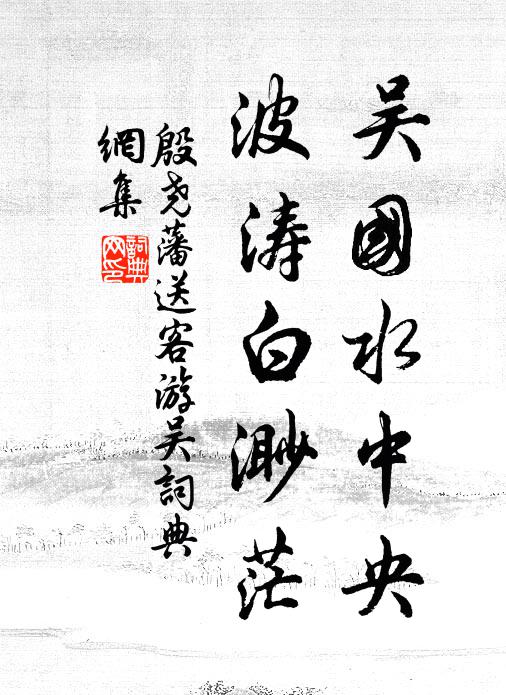 吴國水中央
波涛白渺茫
殷尧藩送客游吴詞典
網集
詞典
网印